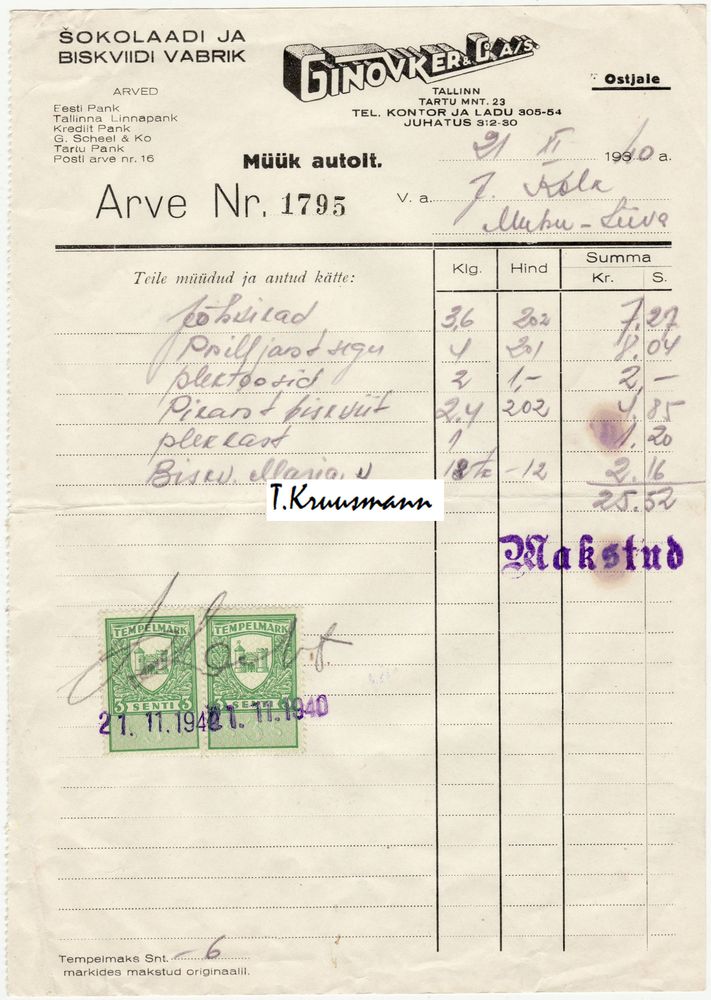 ŠOKOLAADI JA
BISKVIIDI VABRIK
GINOVKER & Co. A/S.
TALLINN
TARTU MNT. 23
TEL. KONTOR JA LADU 305-54
JUHATUS 312-30
Ostjale
ARVED
Eesti Pank
Tallinna Linnapank
Krediit Pank
G. Scheel & Ko
Tartu Pank
Posti arve nr. 16
Müük autolt.
21 XI 1940 a.
Arve Nr. 1795
V. a. J. Kolk
Muhu-Liiva
Teile müüdud ja antud kätte: Klg. Hind Summa
Kr. S.
3,6 202 7.27
4 201 8.04
plektoosid 2 1,- 2,-
Pikant biskviit 2.4 202 4.85
plekkast 1 1.20
Biskv. Maria 18 tk -12 2.16
25.52
T.Kruusmann
Makstud
TEMPELMARK TEMPELMARK
3 SENTI 3 3 SENTI 3
21.11.1940 21.11.1940
Tempelmaks Snt. -6
markides makstud originaalil.